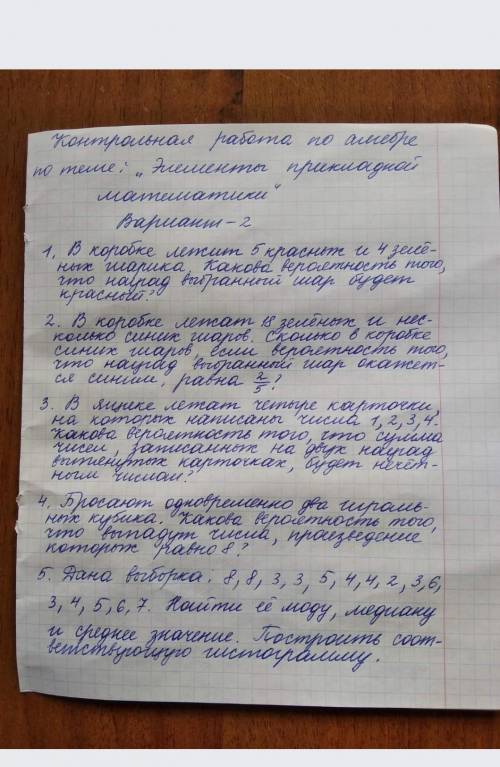 Контрольная работа по алгебре
по теме: „Элементы прикладной
математики"
Вариант-2
1. В коробке лежит 5 красных и 4 зелё-
ных шарика. Какова вероятность того,
что наугад выбранный шар будет
красный?
2. В коробке лежат 18 зелёных и нес-
колько синих шаров. Сколько в коробке
синих шаров, если вероятность того,
что наугад выбранный шар окажет-
ся синим, равна 2/5?
3. В ящике лежат четыре карточки,
на которых написаны числа 1, 2, 3, 4.
Какова вероятность того, что сумма
чисел, записанных на двух наугад
вытянутых карточках, будет нечёт-
ным числом?
4. Бросают одновременно два играль-
ных кубика. Какова вероятность того,
что выпадут числа, произведение
которых равно 8?
5. Дана выборка: 8, 8, 3, 3, 5, 4, 4, 2, 3, 6,
3, 4, 5, 6, 7. Найти её моду, медиану
и среднее значение. Построить соот-
ветствующую гистограмму.